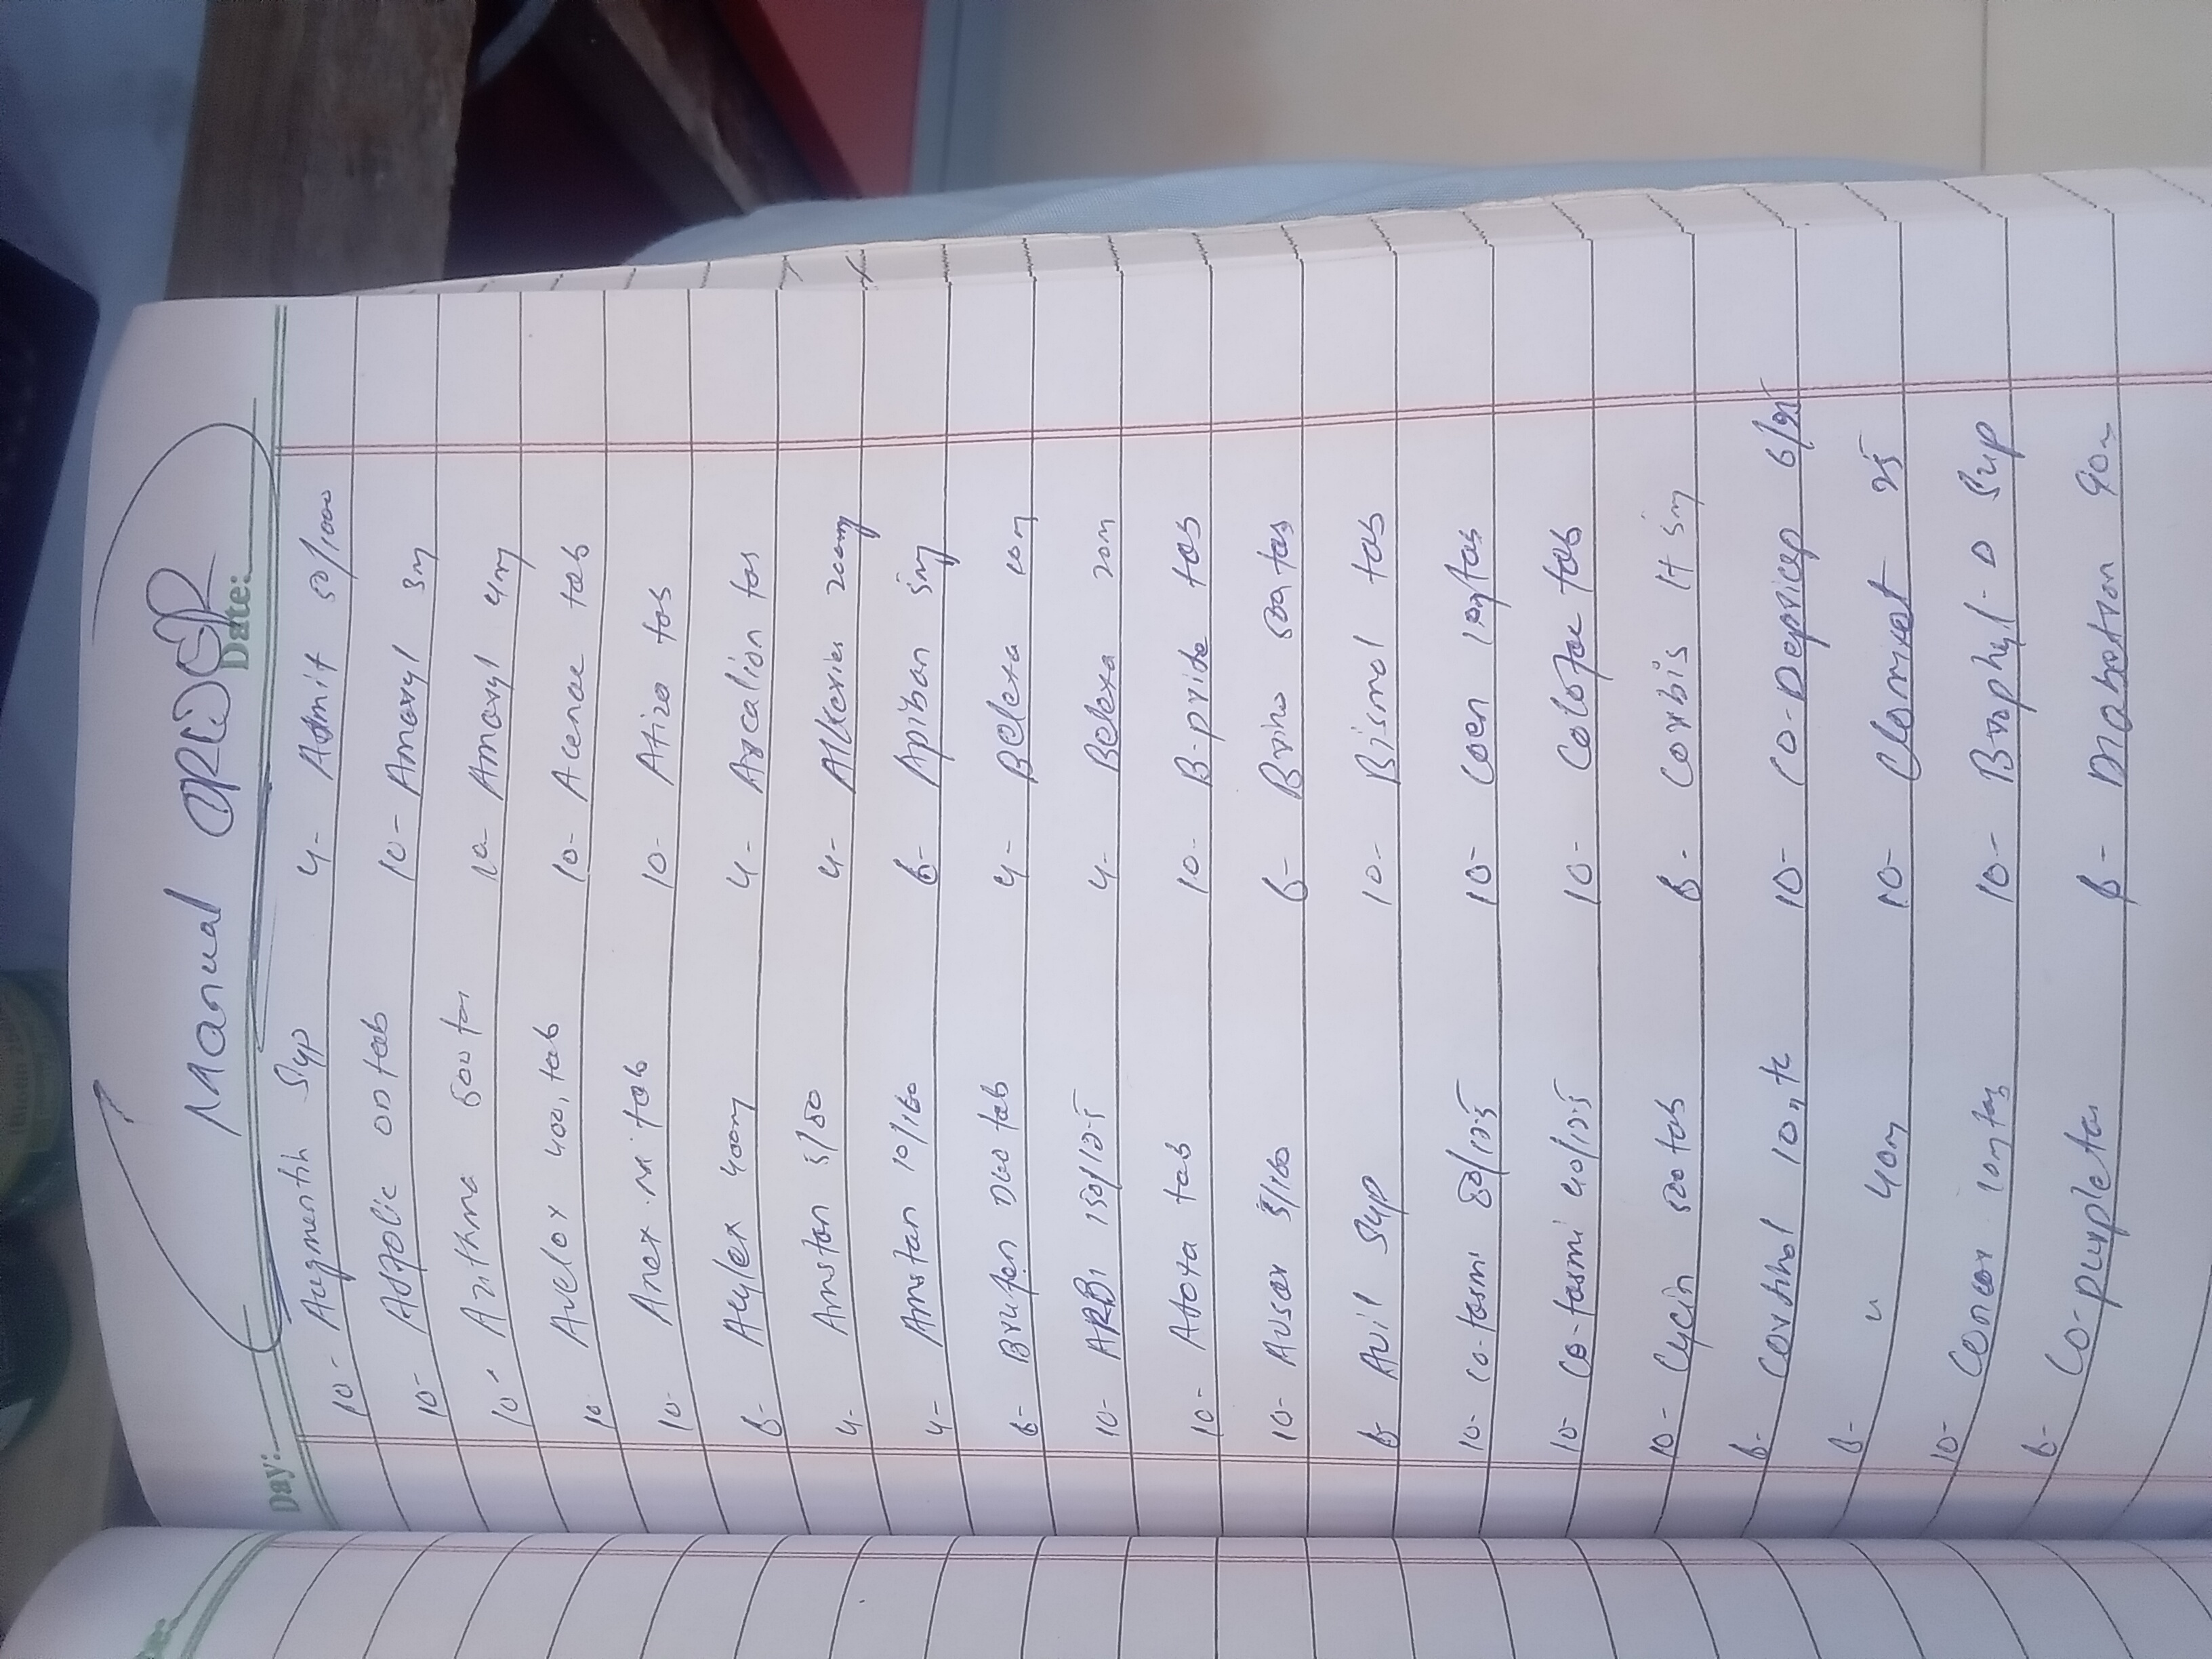 Manual ORDER
Day: Date:
10- Augmentin Syp 4- Admit 50/1000
10- Adfolic OD tab 10- Amaryl 3m
10- Azithma 500 ta 10- Amaryl 4m
10 Avelox 400m tab 10- Acenac tab
10- Anex-M tab 10- Atizo tab
6- Acylex 400m 4- Arcalion tab
4- Amstan 5/80 4- Alkeris 200mg
4- Amstan 10/160 6- Apiban 5mg
6- Brufen DUO tab 4- Belexa
10- ARBI 150/12.5 4- Belexa 200m
10- Atoxa tab 10- B-pride tab
10- Ausar 5/160 6- Brino 500 tab
6- Avil Syp 10- Bismol tab
10- Co-tasmi 80/12.5 10- Coen tab
10- Co-tasmi 40/12.5 10- Colofac tab
10- Cycin 500 tab 6- Corbis H 5m
6- 10m 10- Co-Depricap 6/25
6- " 40m 10- 25
10- Concor 10m tab 10- Brophyl-D Syp
6- Co-purpleta 6- Diabetron